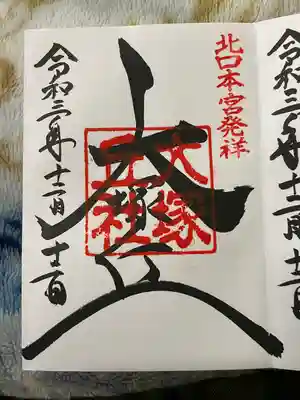 北口本宮発祥
大塚
丘社
令和三年十二月十一日
令和三年十二月